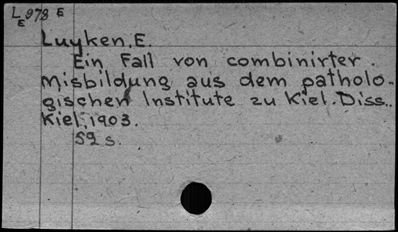 L 978 E
E
Luyken, E.
Ein Fall von combinirter
Misbildung aus dem patholo-
gischen Institute zu Kiel. Diss.
Kiel, 1903.
S2 s.